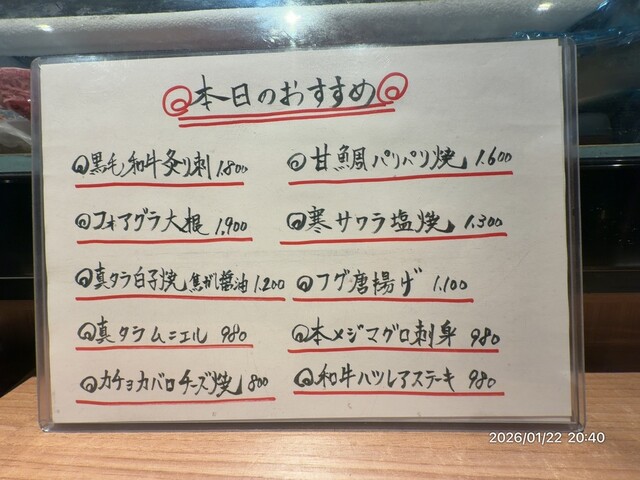 本日のおすすめ
黒毛和牛炙り刺 1.800
フォアグラ大根 1,900
真タラ白子焼 焦がし醤油 1.200
真タラムニエル 980
カチョカバロチーズ焼 800
甘鯛パリパリ焼 1.600
寒サワラ塩焼 1.300
フグ唐揚げ 1.100
本メジマグロ刺身 980
和牛ハツレアステーキ 980
2026/01/22 20:40